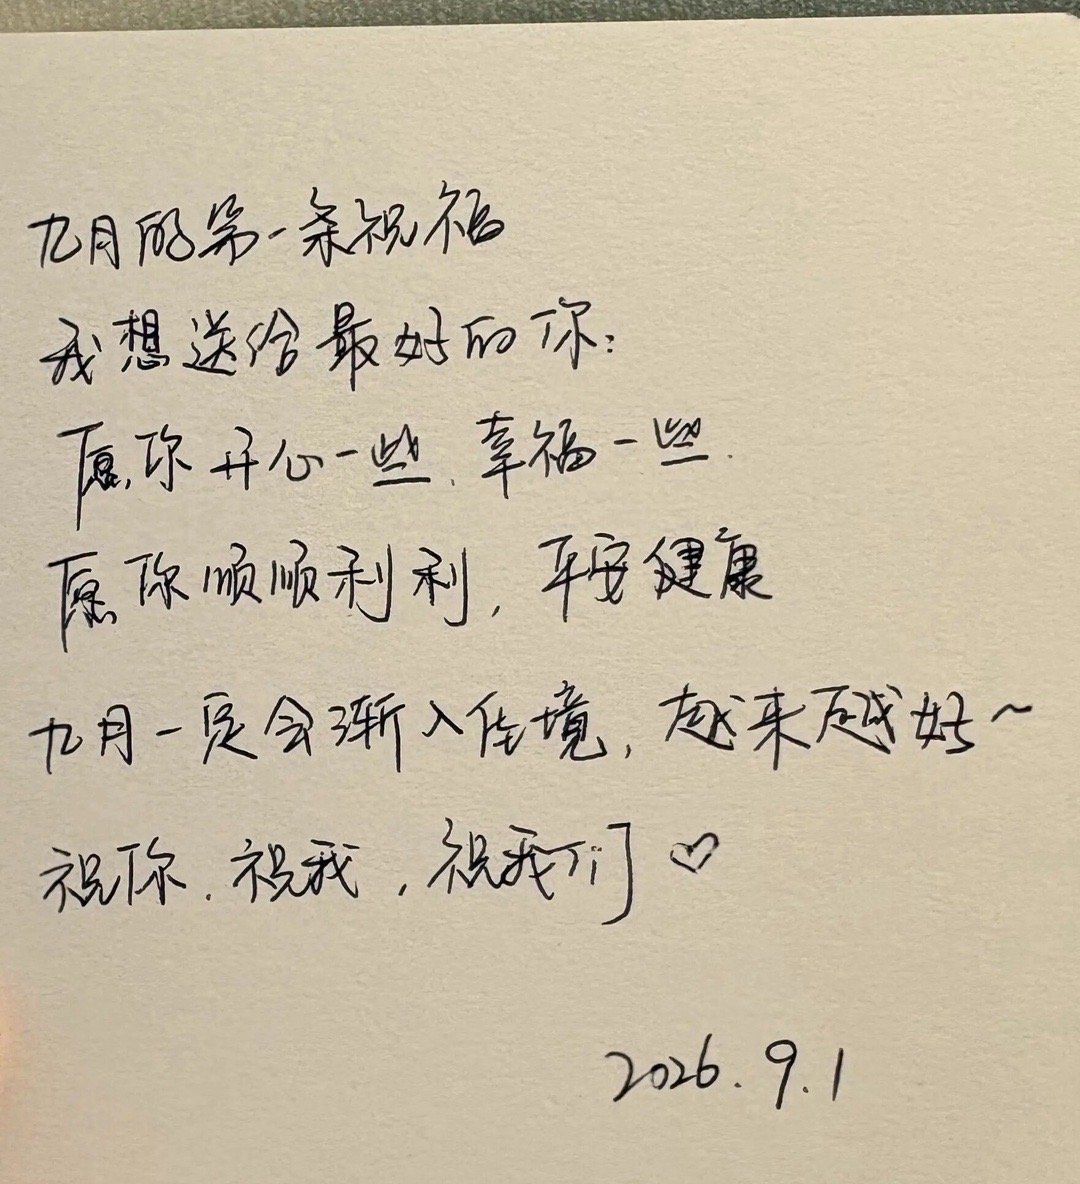 九月的第一条祝福
我想送给最好的你：
愿你开心一些、幸福一些.
愿你顺顺利利，平安健康
九月一定会渐入佳境，越来越好～
祝你、祝我，祝我们♡
2026.9.1